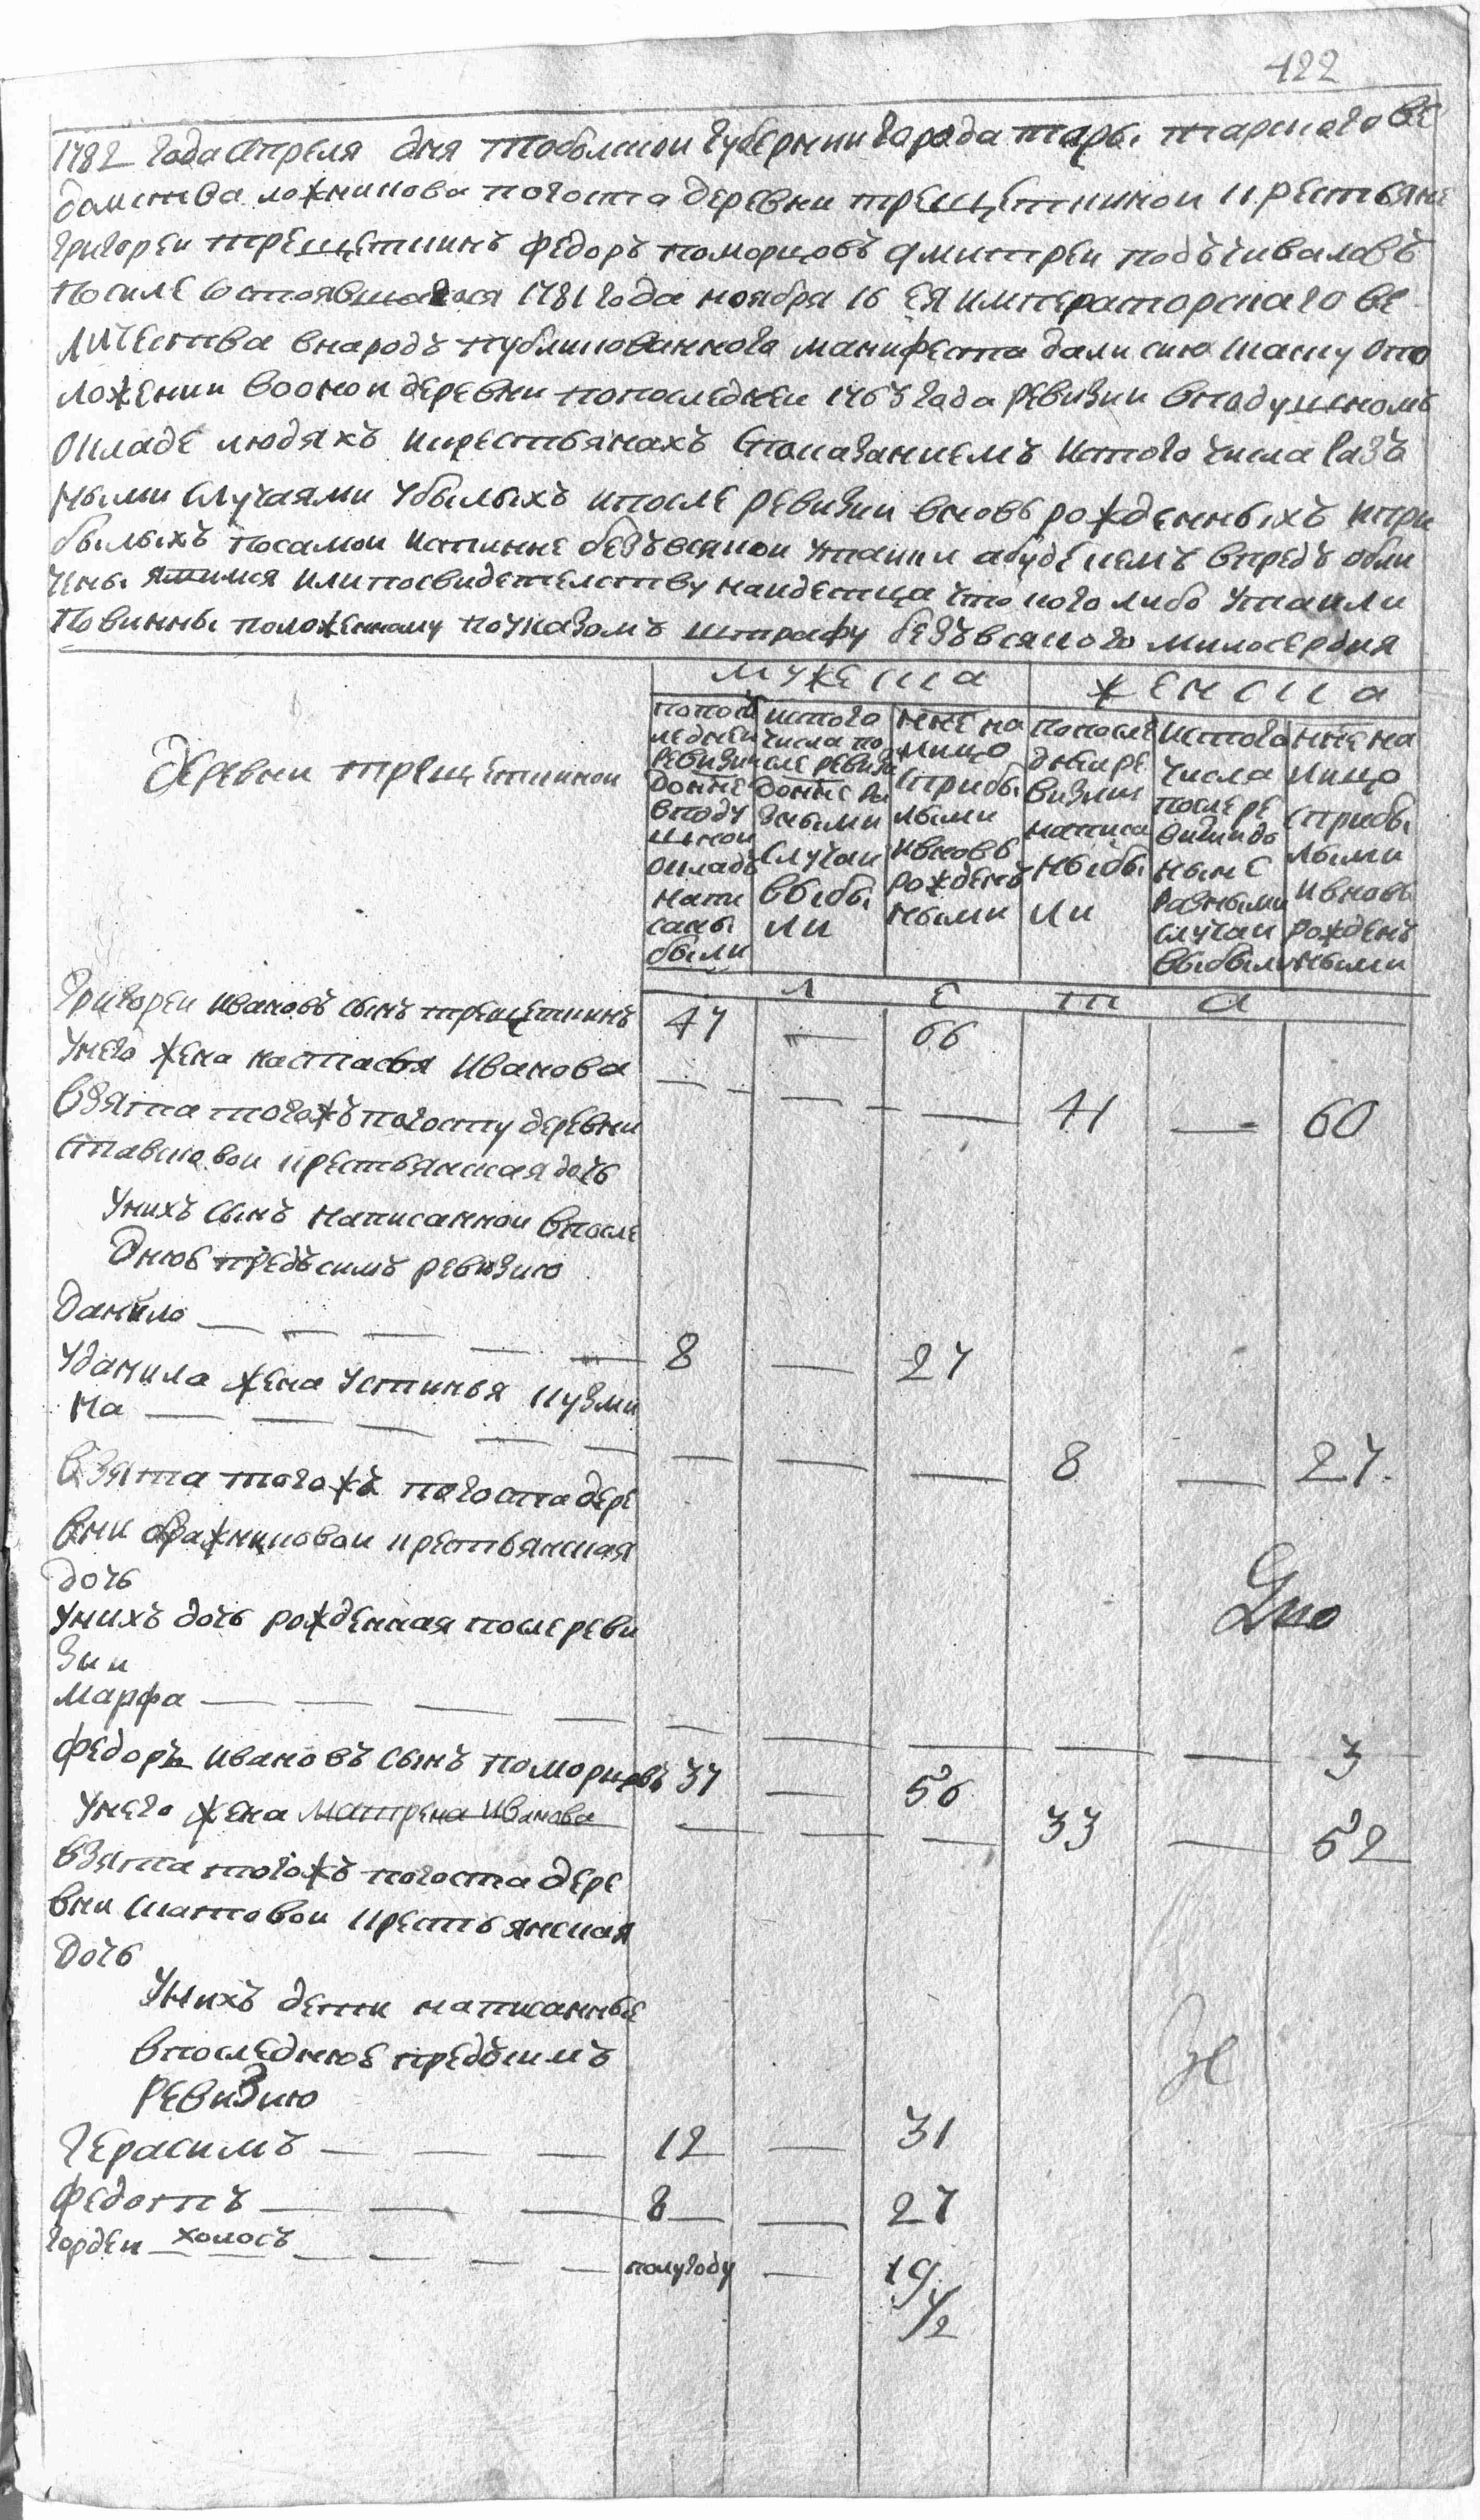 422
1782 года апреля дня тоболской губернии города тары тарского ве
домства ложникова погоста деревни трещеткиной крестьяне
григореи трещеткинъ федоръ поморцовъ дмитреи подъчиваловъ
по силе состоявшагося 1781 года ноября 16 ея императорскаго ве
личества внародъ публикованного манифеста дали сию скаску опо
ложении воонои деревни попоследнеи 1763 года ревизии вподушномъ
окладе людяхъ икрестьянахъ споказаниемъ истого числа разъ
ными случаями убылыхъ ипосле ревизии вновь рожденныхъ ипри
былыхъ посамои истинне безъвсякои утаики абуде кемъ впредь обли
чены явимся илипосвидетелству наидетца что кого либо утаили
повинны положенному поуказомъ штрафу безъвсякого милосердия
мужеска женска
деревни трещеткинои
попос ледней ревизии донне вподу шнои окладъ напи саны были
истого числа по сле ревизи донне ра зными случаи выбы ли
нне на лицо сприбы лыми ивновь рожденъ ными
попосле днеи ре визии написа ны бы ли
истого числа после ре визии до ныне разными случаи выбыли
нне на лицо сприбы лыми ивновь рожденъ ными
л е т а
Григореи ивановъ сынъ трещеткинъ 47 — 66
Унего жена настасья Иванова — — — 41 — 60
взята тогожъ погосту деревни
ставсковои крестьянская дочь
Унихъ сынъ написаннои впосле
днюю предъсимъ ревизию
Данило — 8 — 27
Уданила жена Устинья кузми
на — — — — 8 — 27
взята тогожъ погоста дере
вни бражниковои крестьянская
дочь
Унихъ дочь рожденная после реви
зии
Марфа — — — — — — 3
Федоръ ивановъ сынъ поморцовъ 37 — 56
Унего жена матрена иванова — — — 33 — 52
взята тогожъ погоста дере
вни шатовои крестьянская
дочь
Унихъ дети написанные
впоследнюю предъсимъ
ревизию
Герасимъ — 12 — 31
Федотъ — 8 — 27
Гордеи холосъ — полугоду — 19 1/2